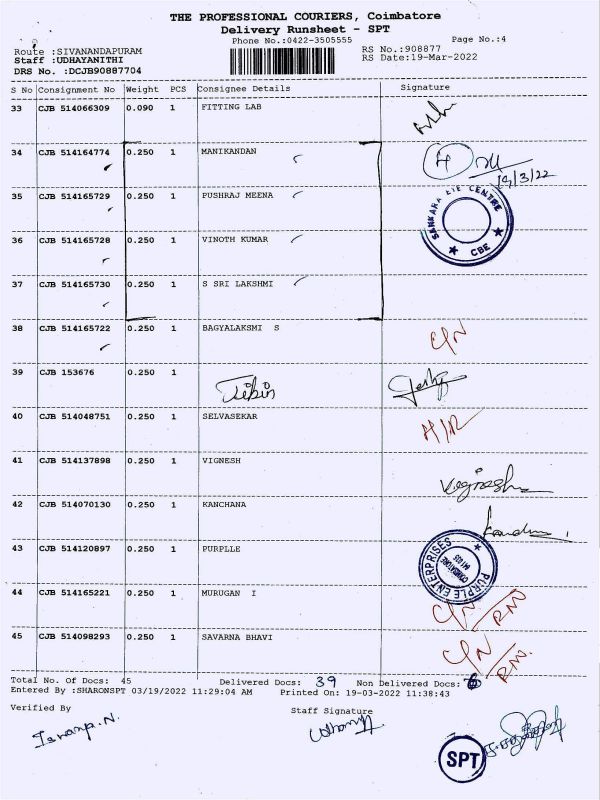 THE PROFESSIONAL COURIERS, Coimbatore
Delivery Runsheet - SPT
Phone No.:0422-3505555
Page No.:4
Route :SIVANANDAPURAM
RS No.:908877
Staff :UDHAYANITHI
RS Date:19-Mar-2022
DRS No. :DCJB90887704
S No Consignment No Weight PCS Consignee Details Signature
33 CJB 514066309 0.090 1 FITTING LAB
34 CJB 514164774 0.250 1 MANIKANDAN
19/3/22
35 CJB 514165729 0.250 1 PUSHRAJ MEENA
SANKARA EYE CENTRE
CBE
36 CJB 514165728 0.250 1 VINOTH KUMAR
37 CJB 514165730 0.250 1 S SRI LAKSHMI
38 CJB 514165722 0.250 1 BAGYALAKSMI S
C/N
39 CJB 153676 0.250 1
Tsibin
40 CJB 514048751 0.250 1 SELVASEKAR
41 CJB 514137898 0.250 1 VIGNESH
Vignesh
42 CJB 514070130 0.250 1 KANCHANA
43 CJB 514120897 0.250 1 PURPLLE
PURPLE ENTERPRISES
COIMBATORE
44 CJB 514165221 0.250 1 MURUGAN I
C/N
45 CJB 514098293 0.250 1 SAVARNA BHAVI
C/N
Total No. Of Docs: 45 Delivered Docs: 39 Non Delivered Docs: 6
Entered By :SHARONSPT 03/19/2022 11:29:04 AM Printed On: 19-03-2022 11:38:43
Verified By
Staff Signature
SPT